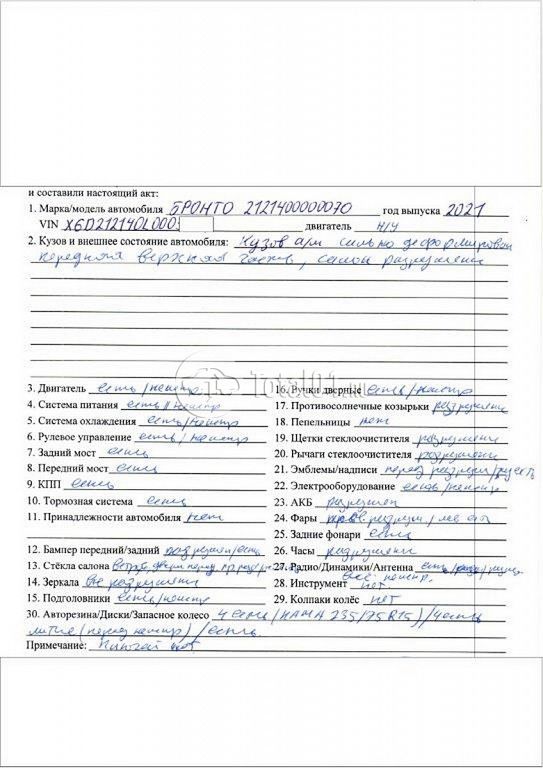 и составили настоящий акт:
1. Марка/модель автомобиля БРОНТО 2121400000070 год выпуска 2021
VIN X6D21214OL000 двигатель Н/У
2. Кузов и внешнее состояние автомобиля: Кузов а/м сильно деформирован
передняя верхняя часть, салон разрушен
3. Двигатель есть/неиспр
4. Система питания есть/неиспр
5. Система охлаждения есть/неиспр
6. Рулевое управление есть/неиспр
7. Задний мост есть
8. Передний мост есть
9. КПП есть
10. Тормозная система есть
11. Принадлежности автомобиля нет
12. Бампер передний/задний разрушен/есть
13. Стёкла салона
14. Зеркала все разрушены
15. Подголовники есть/неиспр
16. Ручки дверные есть/неиспр
17. Противосолнечные козырьки разрушены
18. Пепельницы нет
19. Щетки стеклоочистителя разрушены
20. Рычаги стеклоочистителя разрушены
21. Эмблемы/надписи перед разруш/
22. Электрооборудование есть/неиспр
23. АКБ разрушен
24. Фары прав. разруш./лев
25. Задние фонари есть
26. Часы разрушены
27. Радио/Динамики/Антенна есть/
все неиспр.
28. Инструмент нет
29. Колпаки колёс нет
30. Авторезина/Диски/Запасное колесо 4 есть (КАМА 235/75 R15)/4 есть
литые (перед неиспр)/есть.
Примечание: нет
Total01.ru